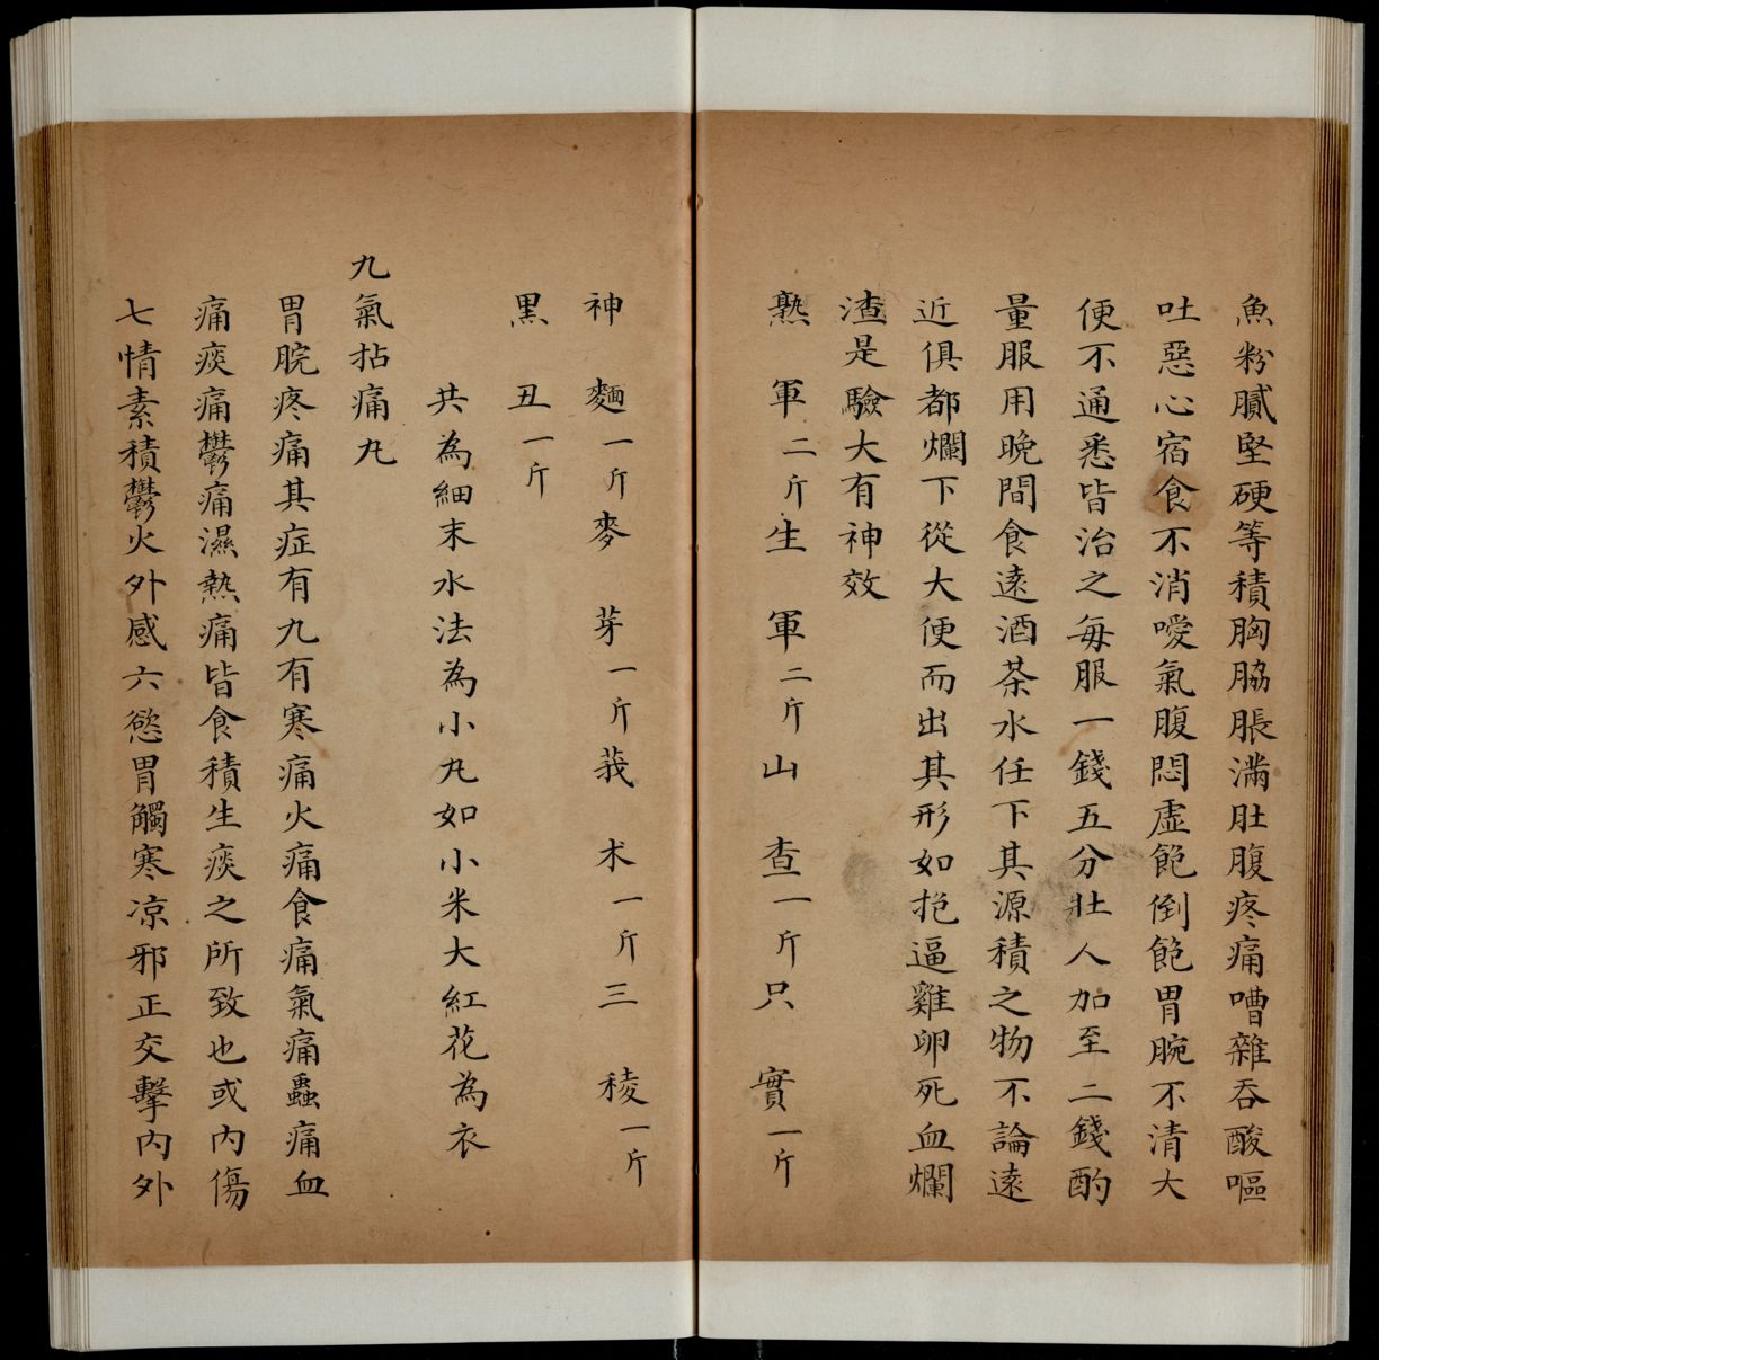 魚粉膩堅硬等積胸脇脹滿肚腹疼痛嘈雜吞酸嘔
吐惡心宿食不消噯氣腹悶虛飽倒飽胃腕不清大
便不通悉皆治之每服一錢五分壯人加至二錢酌
量服用晚間食遠酒茶水任下其源積之物不論遠
近俱都爛下從大便而出其形如抱逼雞卵死血爛
渣是驗大有神效
熟軍二斤生軍二斤山查一斤只實一斤
神麯一斤麥芽一斤莪朮一斤三稜一斤
黑丑一斤
共為細末水法為小丸如小米大紅花為衣
九氣拈痛丸
胃脘疼痛其症有九有寒痛火痛食痛氣痛蟲痛血
痛痰痛鬱痛濕熱痛皆食積生痰之所致也或內傷
七情素積鬱火外感六慾胃觸寒凉邪正交擊內外